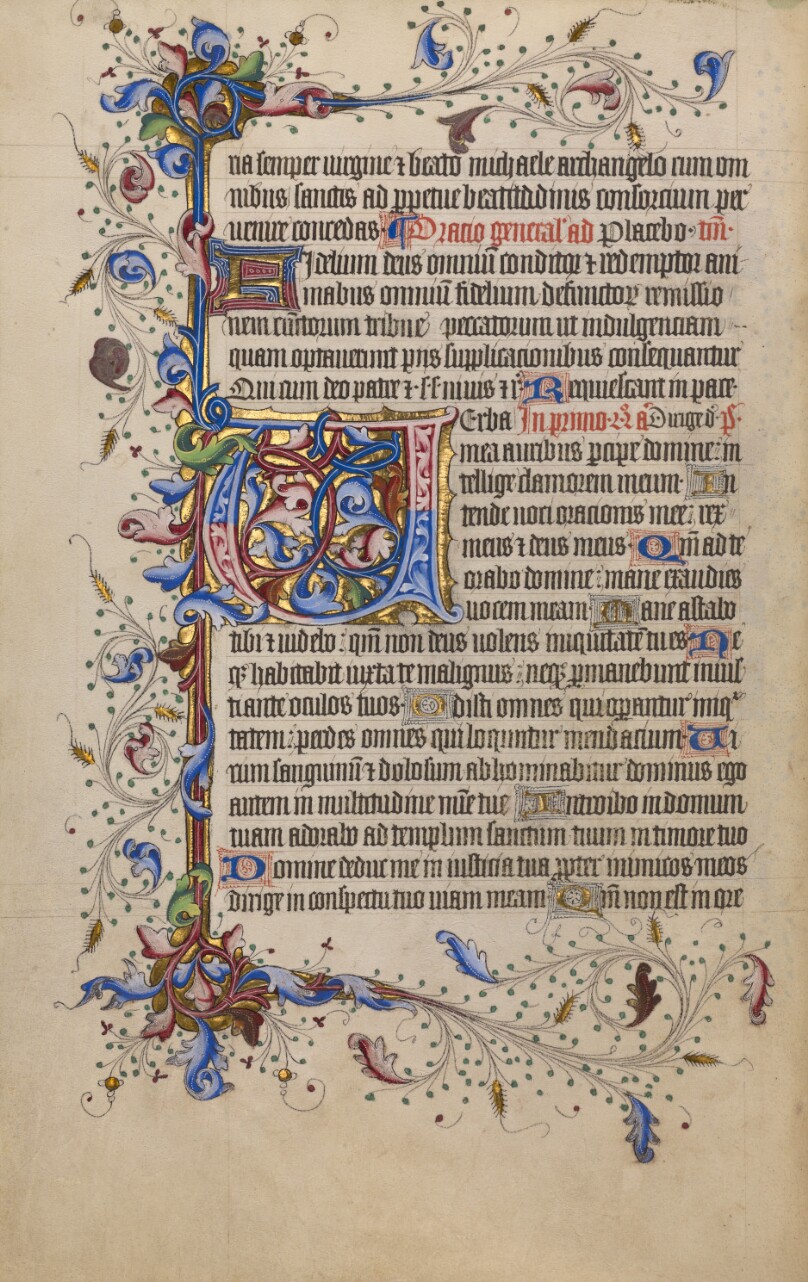 na semper uirgine ⁊ beato michaele archangelo cum om
nibus sanctis ad ꝑpetue beatitudinis consorcium per
uenire concedas. ¶ Oracio general' ad Placebo. tm̄.
Fidelium deus omniū conditor ⁊ redemptor ani
mabus omniū fidelium defunctoꝝ remissio
nem cūctorum tribue peccatorum ut indulgenciam
quam optauerunt piis supplicacionibus consequantur
Qui cum deo patre ⁊ sp̄u Requiescant in pace.
Verba In primo. a Dirige p̄s
mea auribus ꝑcipe domine: in
tellige clamorem meum. In
tende uoci oracionis mee: rex
meus ⁊ deus meus. Qm̄ ad te
orabo domine: mane exaudies
uocem meam. Mane astabo
tibi ⁊ uidebo: qm̄ non deus uolens iniquitatē tu es Ne
qꝫ habitabit iuxta te malignus: neqꝫ ꝑmanebunt inius
ti ante oculos tuos. Odisti omnes qui oꝑantur iniqͥ
tatem: perdes omnes qui loquntur mendacium. Ui
rum sanguinū ⁊ dolosum abhominabitur dominus ego
autem in multitudine mīe tue Introibo in domum
tuam adorabo ad templum sanctum tuum in timore tuo
Domine deduc me in iusticia tua ꝓpter inimicos meos
dirige in conspectu tuo uiam meam Qm̄ non est in ore